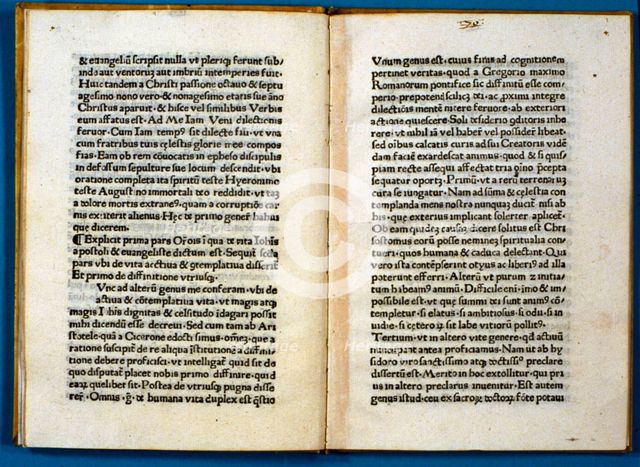 & euangeliū scripsit nulla vt pleriq; ferunt sub/
inda aut ventoruȝ aut imbriū intemperies fuit.
Huic tandem a Christi passione octauo & septu
agesimo nono vero & nonagesimo etatis sue āno
Christus aparuit · & hisce vel similibus Verbis
eum affatus est. Ad Me Iam Veni dilectionis
feruor. Cum Iam tempꝰ sit dilecte fili· vt vna
cum fratribus tuis cęlestis glorie mee compos
fias. Eam ob rem cōuocatis in epheso discipulis
in defossum sepulture sue locum descendit· vbi
oratione completa ita spiritū teste Hyeronimo
teste August no immortali teo reddidit· vt tȝ
a dolore mortis extraneꝰ· quam a corruptiōe car
nis extiterit alienus· Hęc de primo generℓ habui
que dicerem·
¶ Explicit prima pars Orōis ī qua de vita Iohīs
apostoli & euangeliste dictum est·
Et primo de diffinitione vtriusq;·
Vnc ad alterū genus me conferam· vbi de
actiua & cōtemplatiua vita· vt magis atq;
magis Iohis dignitas & celsitudo īdagari possit
mihi dicendū esse decreui· Sed cum tam ab Ari
stotele· quā a Cicerone edocti simus·
ratione suscipit̄ de re aliqua īstitutione a diffini/
tione debere proficisci· vt intelligat̄ quid sit de
quo disputat̄ placet nobis primo diffinire· quid
eaꝝ quelibet sit· Postea de vtriusq; pugna disse
rer̄· Omnis · g̃· humana vita duplex est
Vnum genus est· cuius finis ad cognitionem
pertinet veritas· quod a Gregorio maximo
Romanorum pontifice sic diffinitū esse com/
perio·
dilectionis mente ritere feruore· ab exteriori
actione quiescere· Soli desiderio conditoris inhe
rere· vt nihil iā vel haber̄ vel posSider̄ libeat·
sed oibus calcatis curis ad sui Creatoris vidē
dam faciē exardescat animus· quod & si quis
piam recte assequi affectat
sequatur oport;· Primū· vt a rerū terrenaꝝ
cura se iungatur· Nam ad sūma & cęlestia con
templanda mens nostra nunquaȝ ducit̄ nisi ab
his· que exterius implicant solerter aplicet·
Ob eam quideȝ causaȝ dicere solitus est Chri
sostomus eorū posse neminēȝ spiritualia con
tueri· quos humana & caduca delectant· Qui
vero ista contēpserint otyus ac liberiꝰ ad illa
paterunt efferri· Alterū vt purum
tum habeamꝰ animū· Difficile eni· īmo & im/
possibile est· vt que summi dei sunt animꝰ cō
templetur· si elatus· si ambitiosus· si odij· si in
uidie· si ceteroꝝ sit labe vitiorū pollitꝰ·
Tertium· vt in altero vite genere· qd actiuū
nuncupant̄ antea proficiamus· Nam ut ab hy
sidoro viro sanctissimo atq; doctissimo preclare
dissertū est· Merito in hoc extollitur· qui pri
us in altero preclarus inuenitur· Est autem
genus istud· ceu ex sacroꝝ doctoꝝ fōte potaui